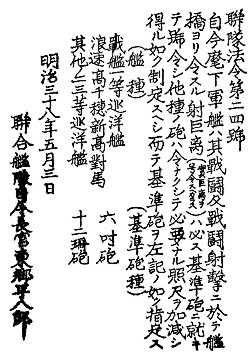 聯隊法令第二四號
自今麾下軍艦ハ其戰鬪及戰鬪射擊ニ於テ艦
橋ヨリ令スル射距离ハ必ス基準砲ニ就キ
テ號令シ他種ノ砲ハ令ナクシテ必要ナル照尺ヲ加減シ
得ル如ク制定スヘシ而テ基準砲ヲ左記ノ如ク指定ス
(艦種) (基準砲種)
戰艦一等巡洋艦 六吋砲
浪速高千穗新高對馬
其他ノ三等巡洋艦 十二珊砲
明治三十八年五月三日
聯合艦隊司令長官東鄉平八郎